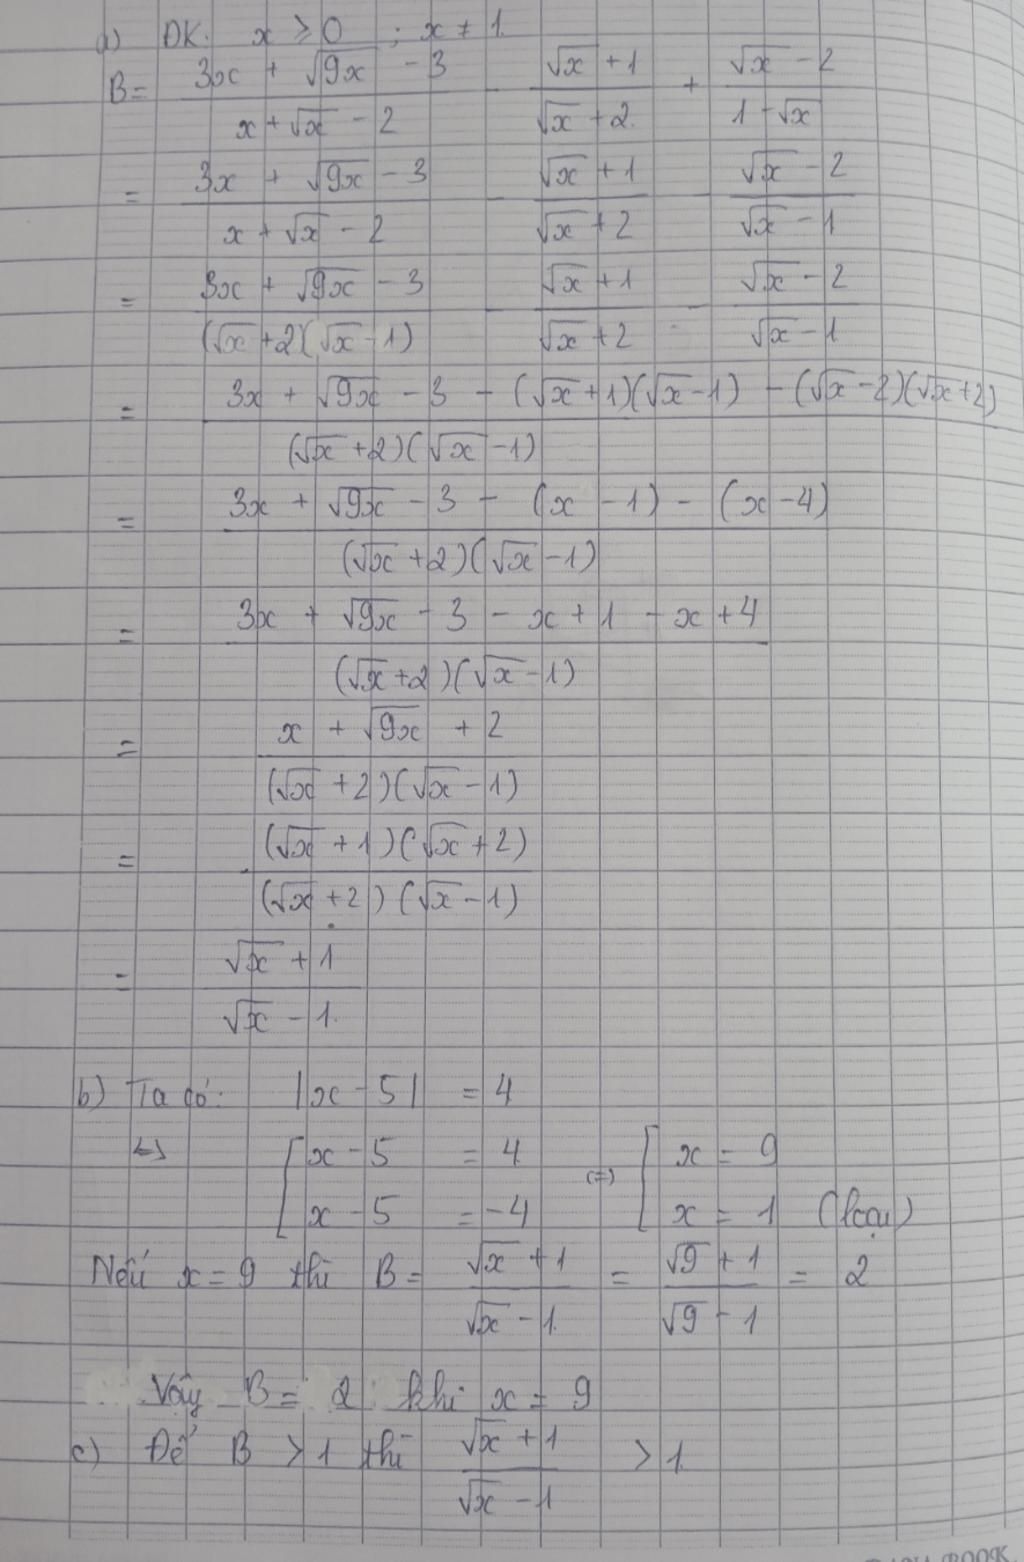 a) ĐK: x ≥ 0 ; x ≠ 1.
B = (3x + √9x - 3)/(x + √x - 2) - (√x + 1)/(√x + 2) + (√x - 2)/(1 - √x)
= (3x + √9x - 3)/(x + √x - 2) - (√x + 1)/(√x + 2) - (√x - 2)/(√x - 1)
= (3x + √9x - 3)/((√x + 2)(√x - 1)) - (√x + 1)/(√x + 2) - (√x - 2)/(√x - 1)
= (3x + √9x - 3 - (√x + 1)(√x - 1) - (√x - 2)(√x + 2))/((√x + 2)(√x - 1))
= (3x + √9x - 3 - (x - 1) - (x - 4))/((√x + 2)(√x - 1))
= (3x + √9x - 3 - x + 1 - x + 4)/((√x + 2)(√x - 1))
= (x + √9x + 2)/((√x + 2)(√x - 1))
= ((√x + 1)(√x + 2))/((√x + 2)(√x - 1))
= (√x + 1)/(√x - 1)
b) Ta có: |x - 5| = 4
<=> [ x - 5 = 4 (=) [ x = 9
x - 5 = -4 x = 1 (loại)
Nếu x = 9 thì B = (√x + 1)/(√x - 1) = (√9 + 1)/(√9 - 1) = 2
Vậy B = 2 khi x = 9
c) Để B > 1 thì (√x + 1)/(√x - 1) > 1